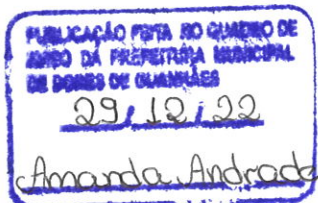 PUBLICAÇÃO FEITA NO QUADRO DE
AVISO DA PREFEITURA MUNICIPAL
DE DORES DE GUANHÃES
29/12/22
Amanda Andrade